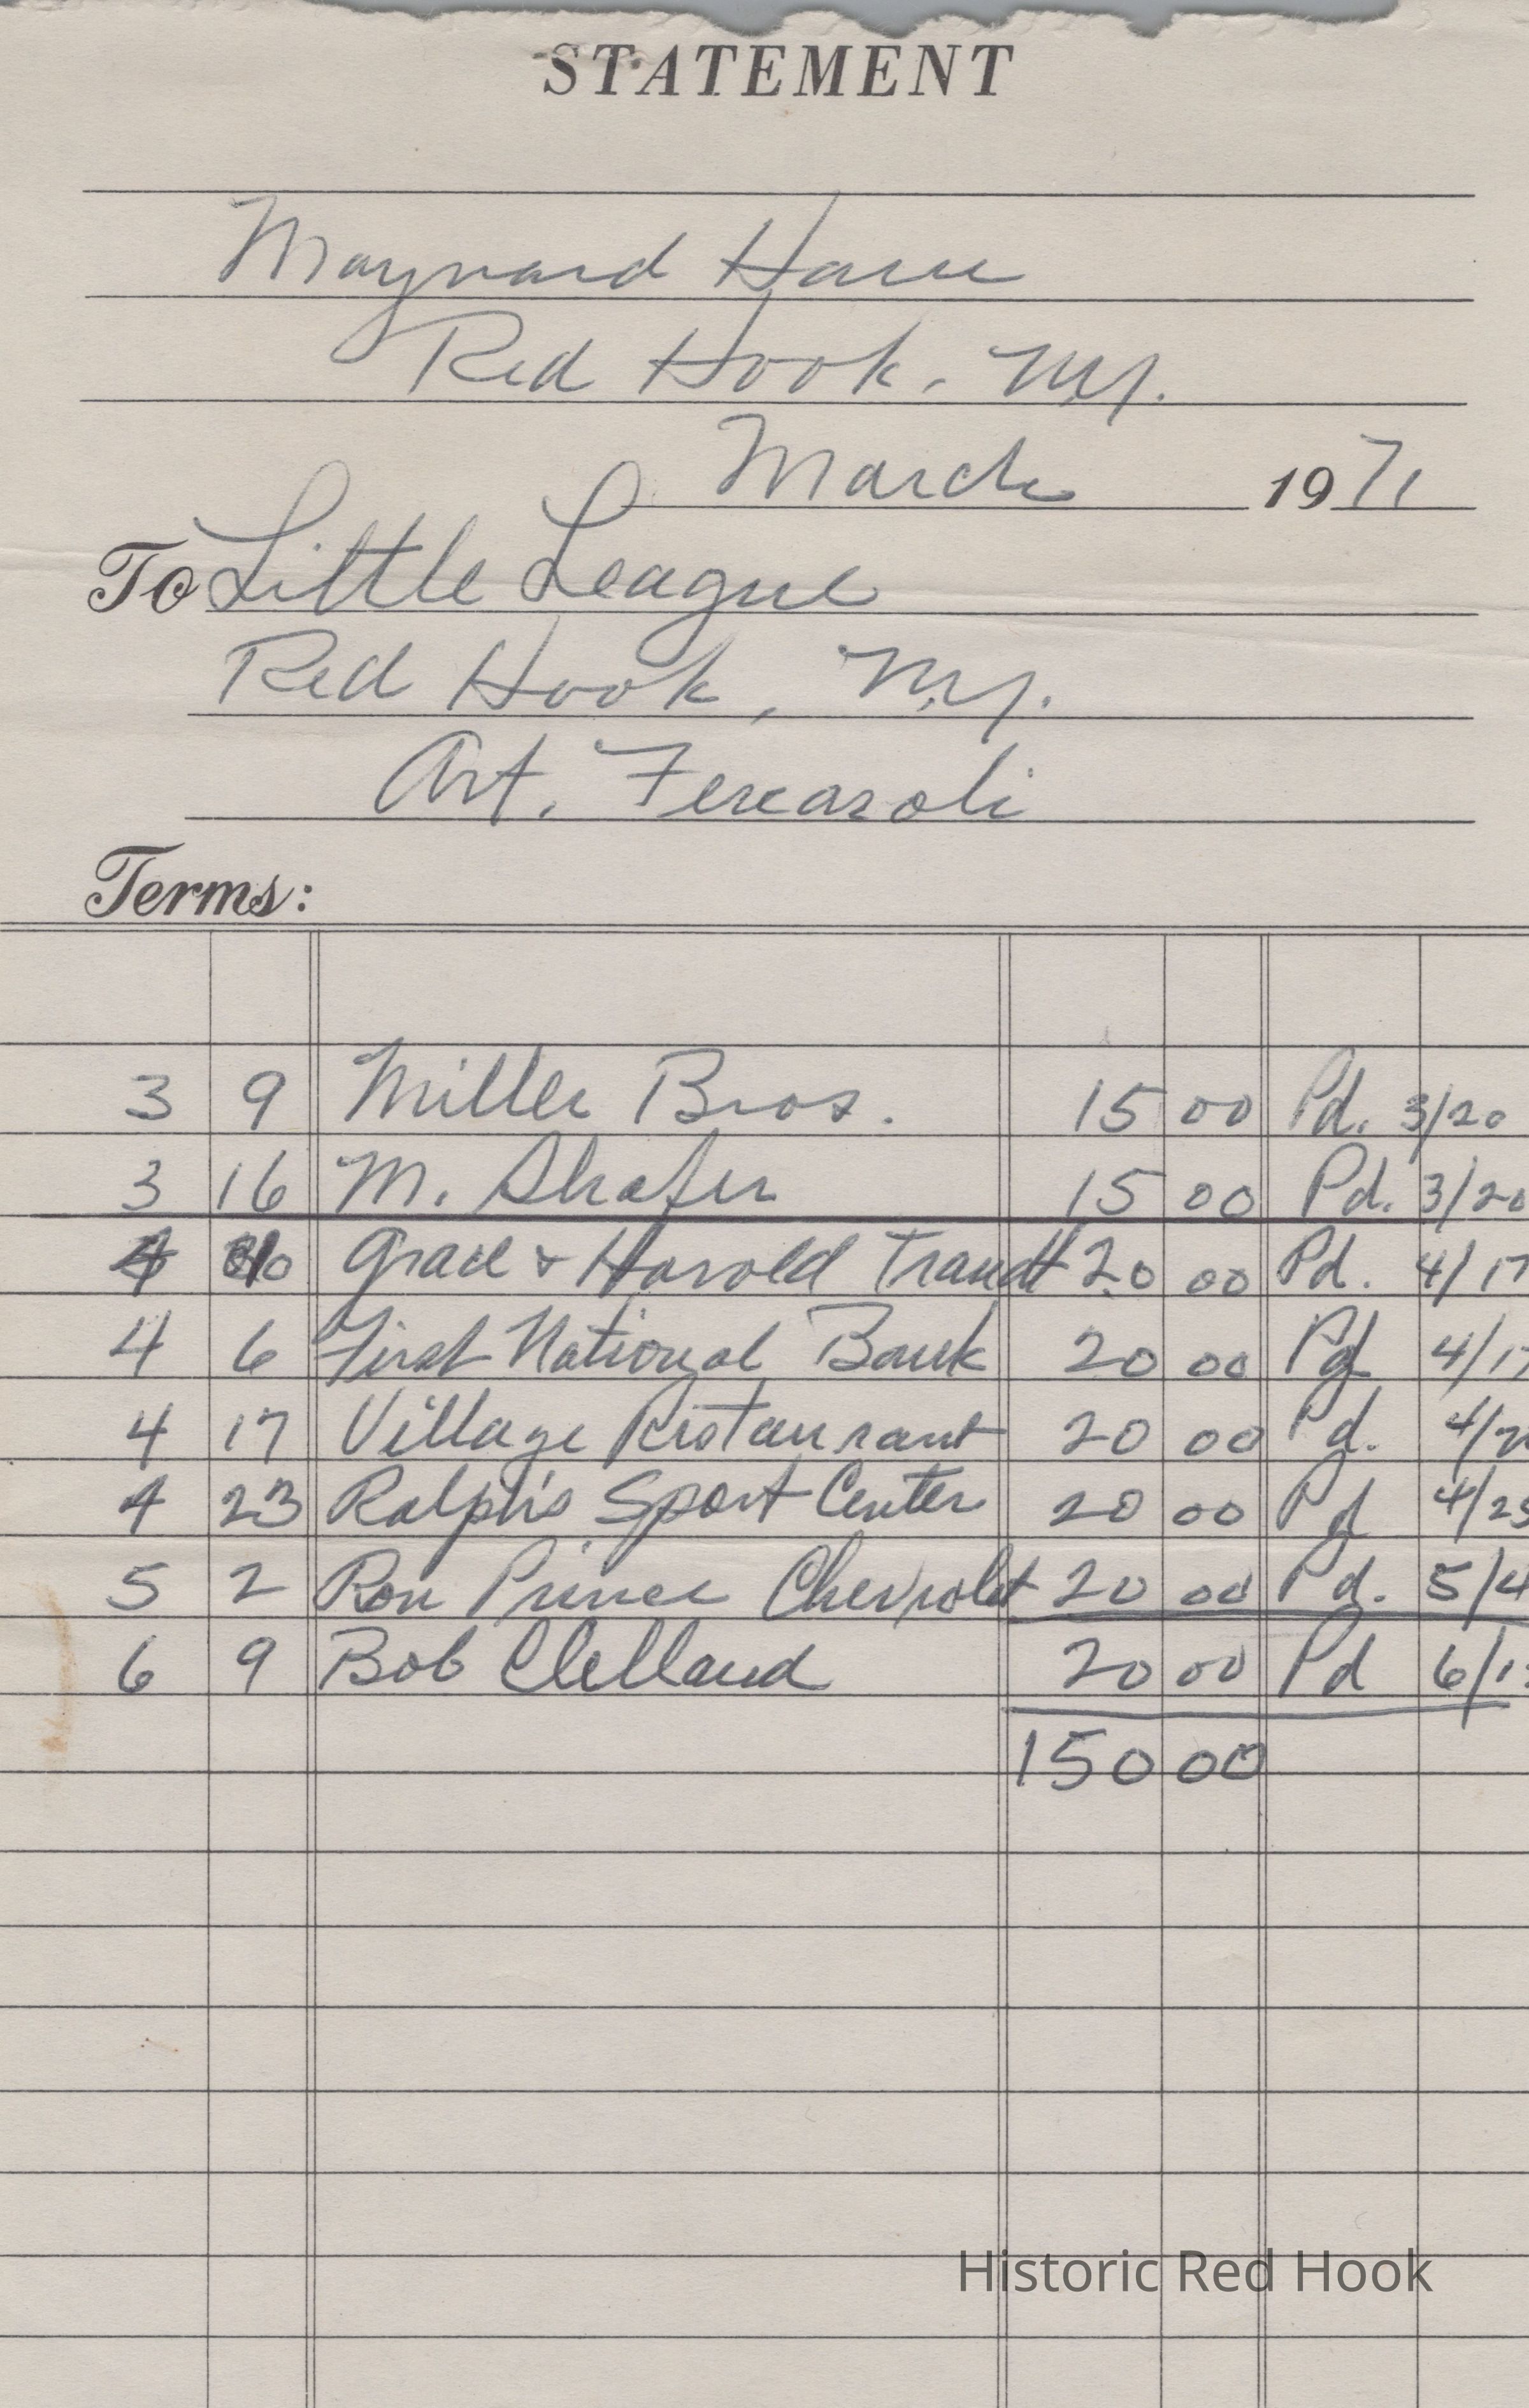 STATEMENT
Maynard
Red Hook, N.Y.
March 1971
To Little League
Red Hook, N.Y.
Art.
Terms:
3 9 Miller Bros. 15 00 Pd. 3/20
3 16 M. Shafer 15 00 Pd. 3/20
4 Grace & Harold Traudt 20 00 Pd. 4/17
4 6 First National Bank 20 00 Pd 4/17
4 17 Village Restaurant 20 00 Pd.
4 23 Ralph's Sport Center 20 00 Pd
5 2 Ron Prince Chevrolet 20 00 Pd. 5/4
6 9 Bob Clelland 20 00 Pd
150 00
Historic Red Hook